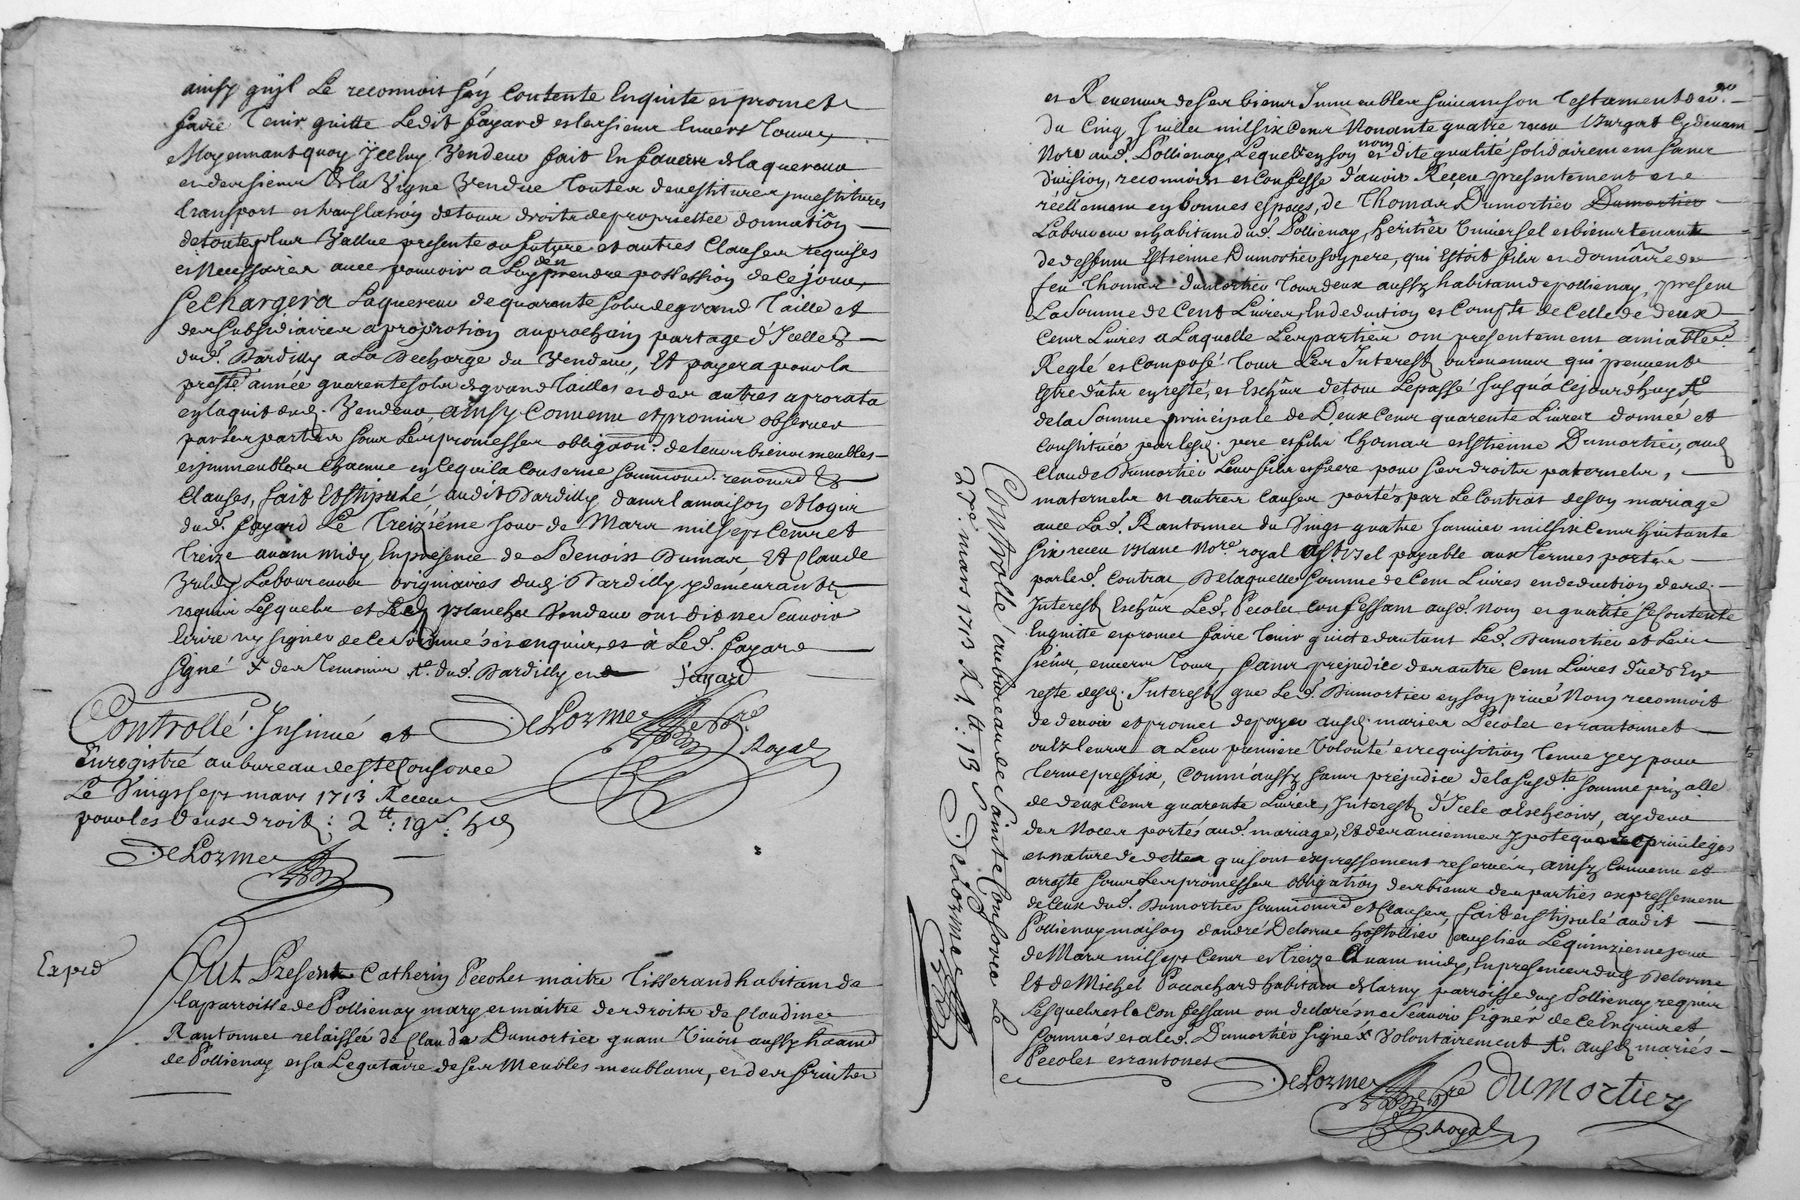 ainsy qu'il Le reconnoit s'en contente Enquitte et promet
faire Tenir quitte Ledit fayard et les siens Envers Tous,
Moyennant quoy Ycelluy Vendeur fait En faveur de laquereur
et des siens de la Vigne Vendue Toutes devestitures investitures
transport et translation de tous droits de proprietté donnation
de toute plus Vallue presente ou future et autres Clauses requises
et Necessaires avec pouvoir a Luy d'en prendre possession de ce jour,
se chargera Laquereur de quarante sols de grand Taille et
des subsidiaires a proprotion au prochain partage d'Icelles
dud. Dardilly a La Decharge du Vendeur, Et payera pour la
pnte année quarente sols de grand Tailles et des autres a prorata
en laquit dud. Vendeur, ainsy Convenu et promis observer
par les parties sous Les promesses obligaon. de leurs biens meubles
et immeubles Chacune en ce qui la Conserne soumions. renond. &
Clauses, fait Et stipulé audit Dardilly dans la maison et logis
dud. fayard Le Treizième jour de Mars mil sept Cent et
treize avant midy En presence de Benoist Dumas, Et Claude
Laboureurs originaires dud. Dardilly y demeurants
requis Lesquels et Led. blanchet Vendeur ont dit ne sçavoir
Ecrire ny signer de ce sommés et enquis, et à Led. fayard
signé des Temoins dud. Dardilly fayard
Controllé. Insinué et DeLorme Nore
Enregistré au bureau de Ste Consorce Royal
Le Vingt sept mars 1713 Receu
pour les deux droits: 2tt: 19s: 4d
DeLorme
Exped
Fut Present Catherin Pecolet maitre Tisserand habitant de
la parroisse de Pollienay mary et maitre des droits de Claudine
Rantonnet relaissée de Claude Dumortier quand Vivoit aussy haant
de Pollienay et sa Legataire de ses Meubles meublants, et des fruites
et Revenus de ses biens Immeubles suivant son Testament
du Cinq Juillet mil six Cent Nonante quatre receu Burgat Cydevant
Nore aud. Pollienay, Lequel en son nom et dite qualité solidairement sans
division, reconnoit et Confesse d'avoir Receu presentement et
réellement en bonnes espces, de Thomas Dumortier Dumortier
Laboureur et habitant dud. Pollienay, heritier Universel et bien tenant
de deffunt Estienne Dumortier son pere, qui Estoit fils et donnaire de
feu Thomas Dumortier Tous deux aussy habitants de pollienay, present
La Somme de Cent Livres, En deduction et Compte de Celle de deux
Cens Livres a Laquelle Les parties ont presentement amiablent.
Reglé et Composé Tous Les Interests ou revenus qui peuvent
Estre dûts en resté, et Eschûs de tout Lepassé jusqu'a Cejourdhuy
de la Somme principale de Deux Cent quarente Livres donnée et
Constituée par lesd. pere et fils Thomas et Estienne Dumortier, aud.
Claude Dumortier Leur fils et frere pour ses droits paternels,
maternels et autres Causes portés par Le Contrat de son mariage
avec Lad. Rantonnet du Vingt quatre Janvier mil six Cent huitante
six receu blanc Nore royal payable aux Termes portés
par led. Contrat De laquelle Somme de Cent Livres en deduction desd.
Interests Eschûs Led. Pecolet confessant aud. Nom et qualité se Contente
Enquitte et promet faire Tenir quitte dautant Led. Dumortier et Les
siens envers Tous, sans prejudice des autre Cent Livres dûes En
resté desd. Interests que Led. Dumortier en son privé Nom reconnoit
de devoir et promet de payer ausd. mariés Pecolet et rantonnet
ou és leurs a Leur premiere Volonté et requisition Tenue icy pour
Terme prefix, Comm'aussy sans prejudice de la susdte somme prinalle
de deux Cens quarente Livres, Interests d'Icelle a Escheoir, aydeur
des Noces portés aud. mariage, Et des anciennes ypoteques privileges
et nature de dettes qui sont expressement reservées, ainsy Convenu et
arresté sous Les promesses obligation des biens des parties expressement
de Ceux dud. Dumortier soumiond. et Clauses, fait et stipulé audit
Pollienay maison d'andré Delorme hostellier aud. lieu Le quinzieme jour
de Mars mil sept Cent et Treize Avant midy, En presence dud. Delorme
Et de Michel Pacachard habitant de Larny parroisse dud. Pollienay requis
Lesquels et le Confessant ont declarés ne sçavoir signer de ce Enquis et
sommés et aled. Dumortier signé Volontairement ausd. mariés
Pecolet et rantonet
DeLorme Nore Dumortier
Royal
Controllé au bureau de Sainte Consorce Le
27e. mars 1713 R. 1tt: 13s DeLorme